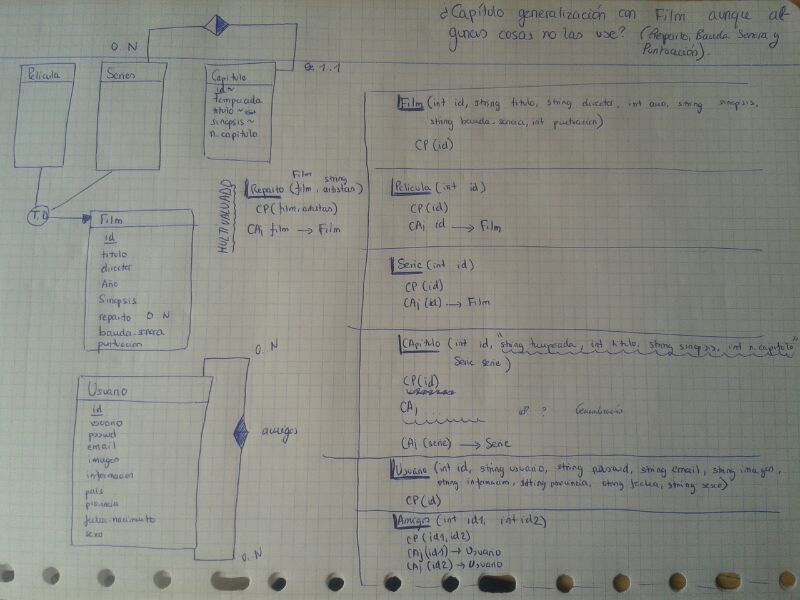 ¿Capítulo generalización con Film aunque al-
gunas cosas no las use? (Reparto, Bauda Sonora y
Puntuación).
0..N
0..1..1
Película
Series
Capitulo
id ~
temporada
titulo ~
sinopsis ~
n_capitulo
T,D
Film
id
titulo
director
Año
Sinopsis
reparto 0..N
bauda_sonora
puntuacion
MULTIVALUADO
Film string
Reparto (film, artistas)
CP (film, artistas)
CAj film → Film
Usuario
id
usuario
passwd
email
imagen
informacion
pais
provincia
fecha_nacimiento
sexo
0..N
amigos
0..N
Film (int id, string titulo, string director, int ano, string sinopsis,
string bauda_sonora, int puntuacion)
CP (id)
Pelicula (int id)
CP (id)
CAj id → Film
Serie (int id)
CP (id)
CAj (id) → Film
CApitulo (int id, "string temporada, int titulo, string sinopsis, int n_capitulo"
Serie serie)
CP (id)
CAj
? Generalización
CAj (serie) → Serie
Usuario (int id, string usuario, string passwd, string email, string imagen,
string informacion, string provincia, string fecha, string sexo)
CP (id)
Amigos (int id1, int id2)
CP (id1, id2)
CAj (id1) → Usuario
CAj (id2) → Usuario